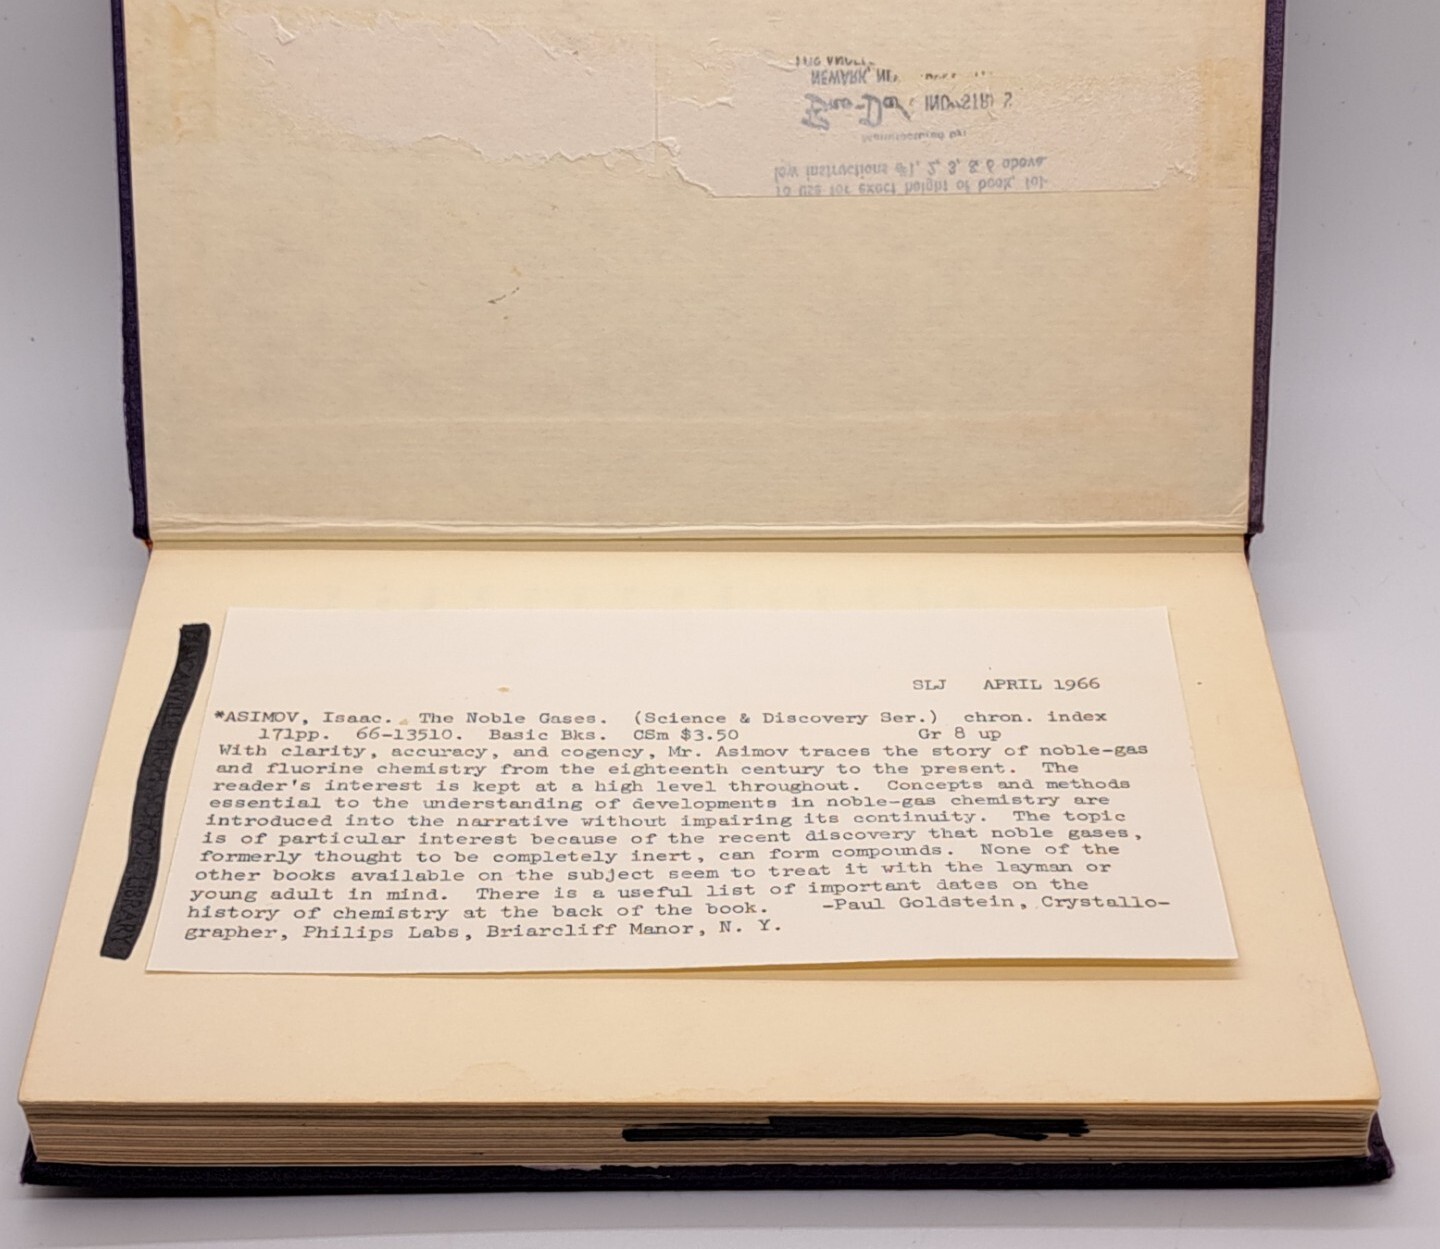 To use for exact height of book, fol-
low instructions #1, 2, 3, & 6 above
Manufactured by:
Bro-Dart INDUSTRIES
NEWARK, N.
SLJ APRIL 1966
*ASIMOV, Isaac. The Noble Gases. (Science & Discovery Ser.) chron. index
171pp. 66-13510. Basic Bks. CSm $3.50 Gr 8 up
With clarity, accuracy, and cogency, Mr. Asimov traces the story of noble-gas
and fluorine chemistry from the eighteenth century to the present. The
reader's interest is kept at a high level throughout. Concepts and methods
essential to the understanding of developments in noble-gas chemistry are
introduced into the narrative without impairing its continuity. The topic
is of particular interest because of the recent discovery that noble gases,
formerly thought to be completely inert, can form compounds. None of the
other books available on the subject seem to treat it with the layman or
young adult in mind. There is a useful list of important dates on the
history of chemistry at the back of the book. -Paul Goldstein, Crystallo-
grapher, Philips Labs, Briarcliff Manor, N. Y.
LIBRARY